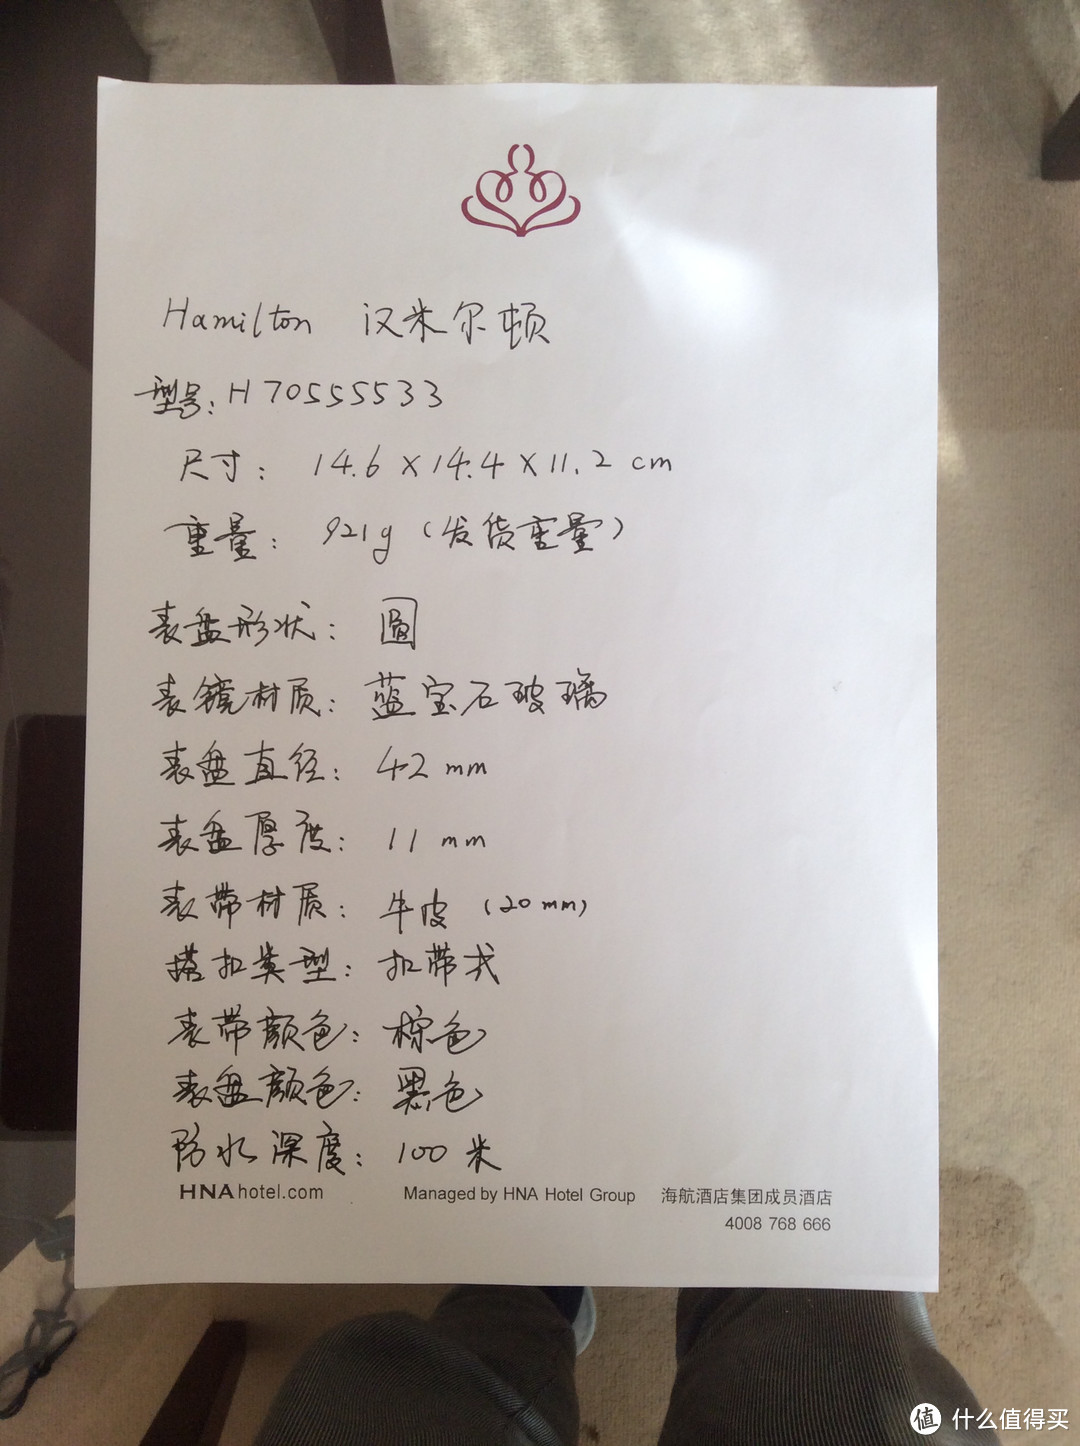 Hamilton 汉米尔顿
型号: H70555533
尺寸: 14.6×14.4×11.2 cm
重量: 921g (发货重量)
表盘形状: 圆
表镜材质: 蓝宝石玻璃
表盘直径: 42 mm
表盘厚度: 11 mm
表带材质: 牛皮 (20mm)
搭扣类型: 扣带式
表带颜色: 棕色
表盘颜色: 黑色
防水深度: 100 米
HNAhotel.com Managed by HNA Hotel Group 海航酒店集团成员酒店
4008 768 666
值 什么值得买